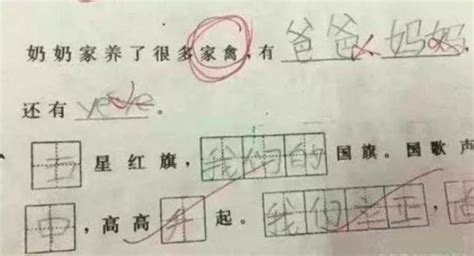 奶奶家养了很多家禽,有爸爸、妈妈,
还有yeye。
五星红旗,我们的国旗。国歌声
中,高高升起。我们立正,